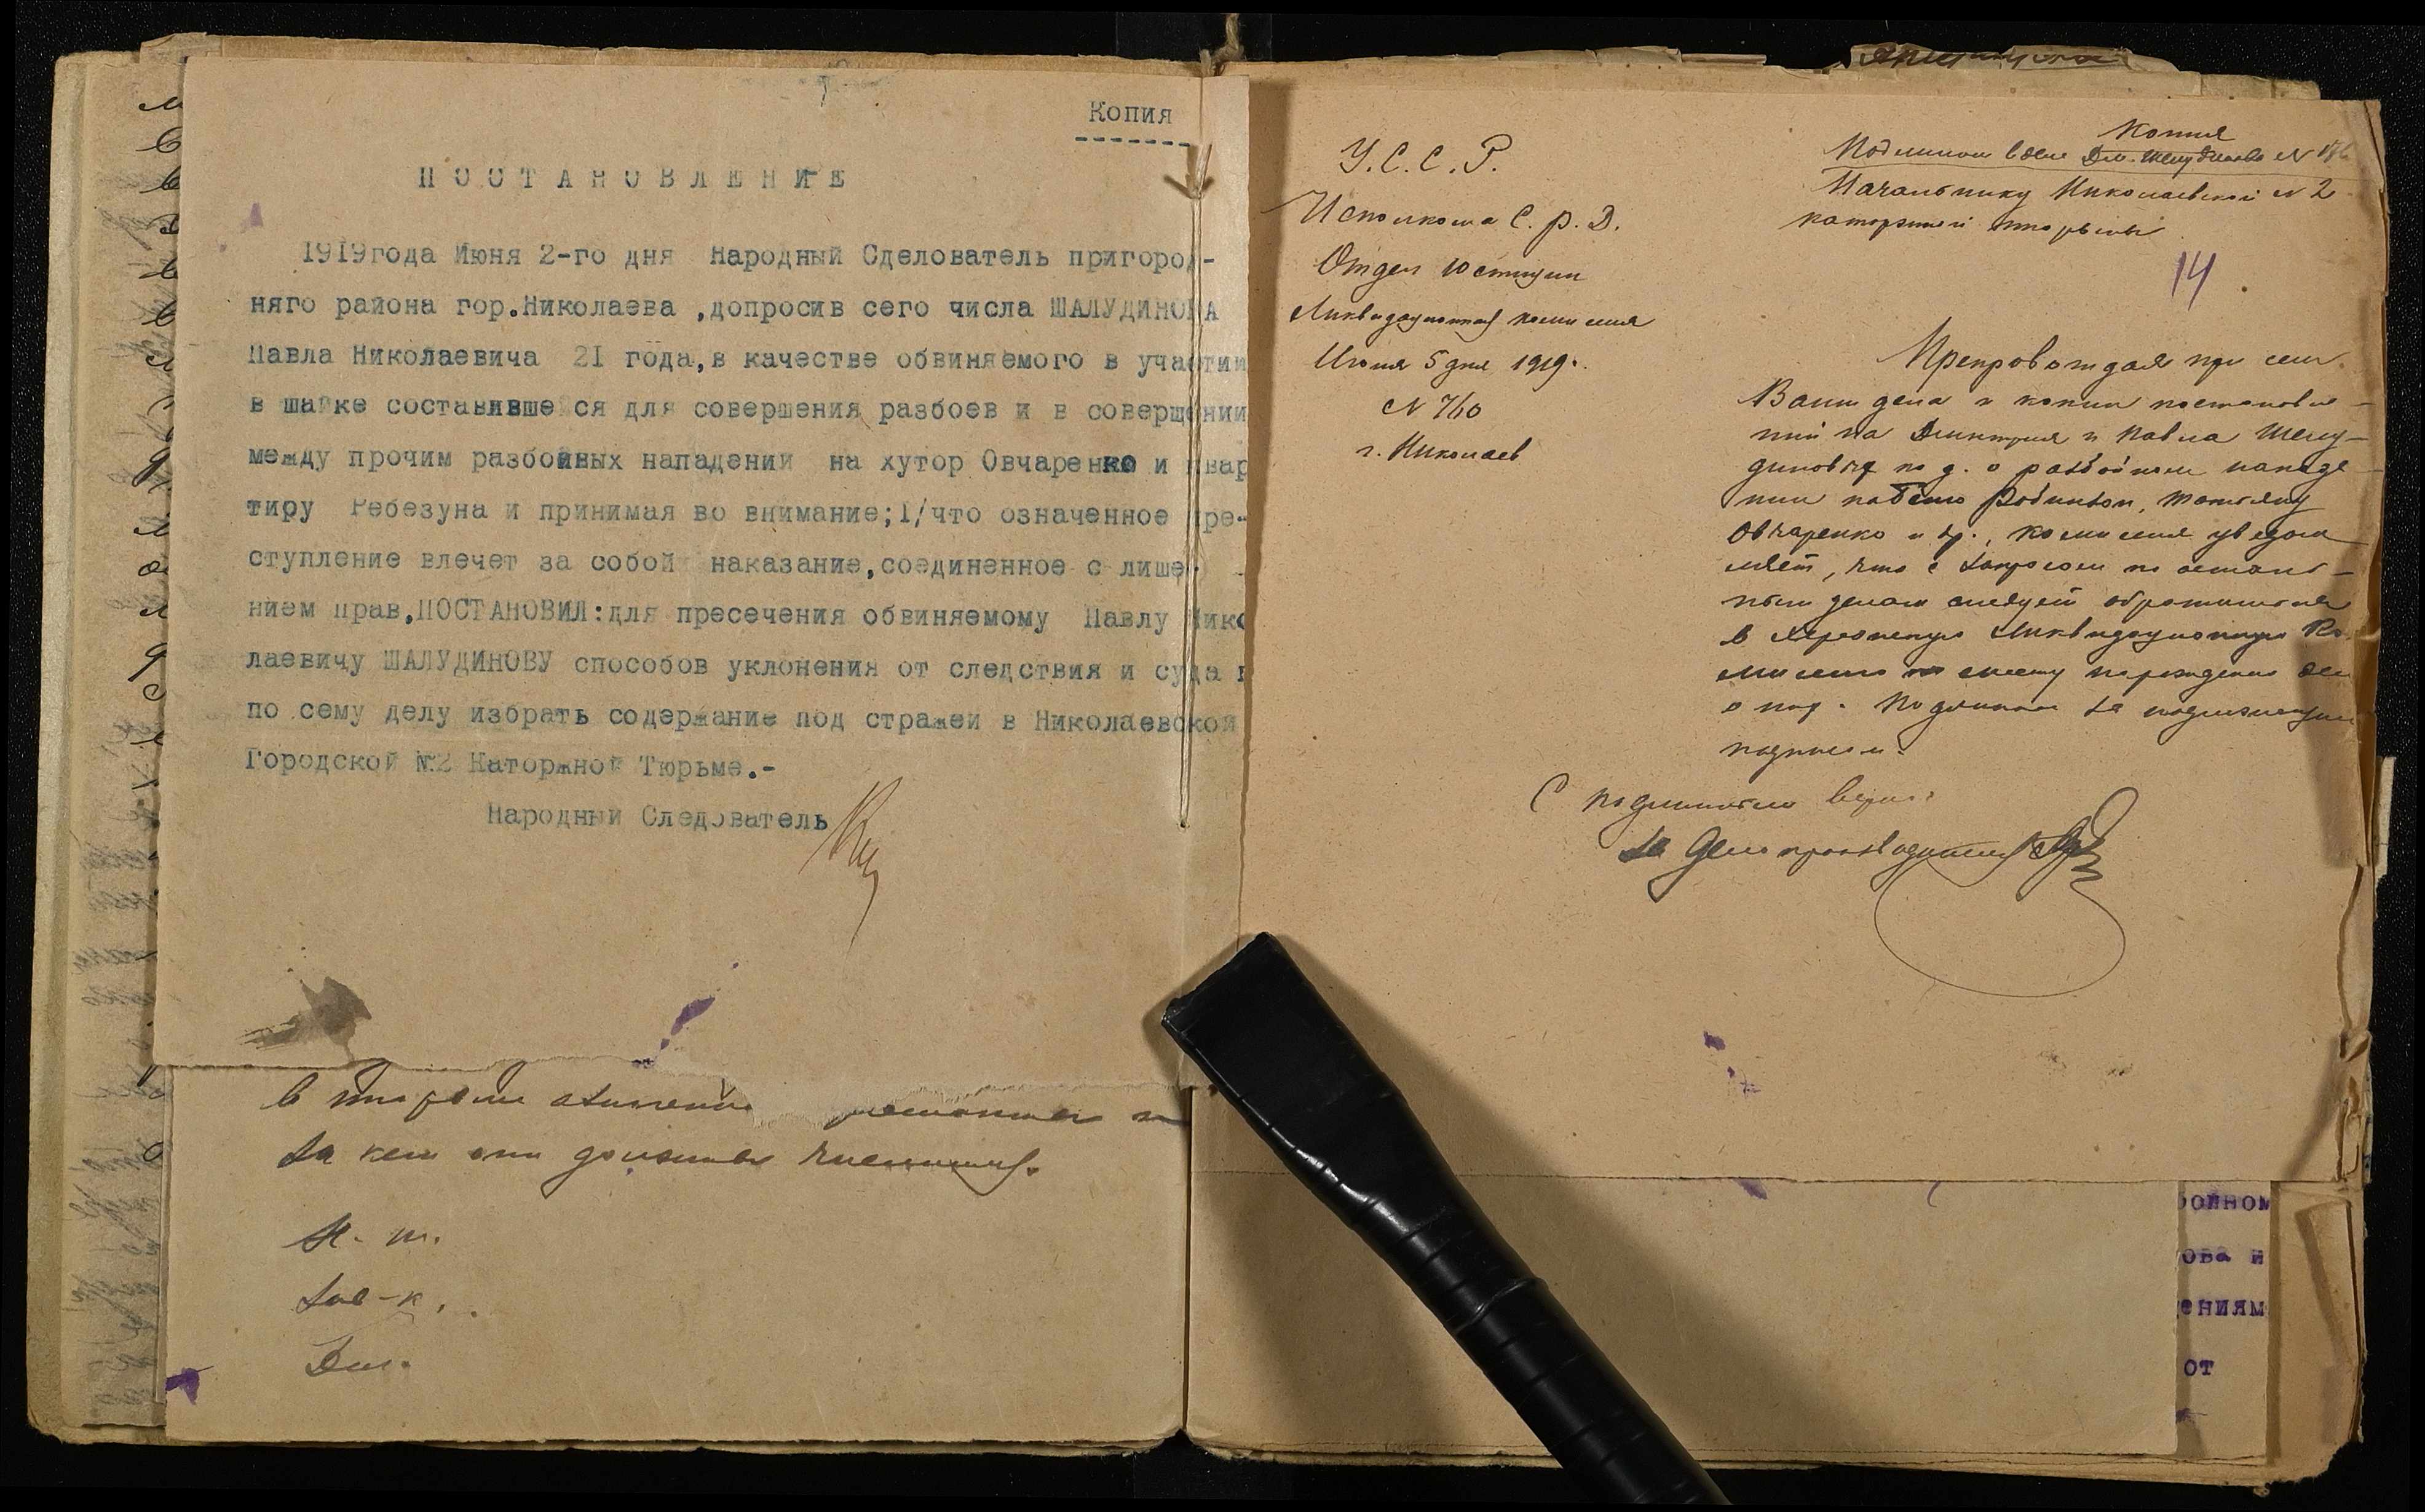 Копия
ПОСТАНОВЛЕНИЕ
1919года Июня 2-го дня Народный Сделователь пригород-
няго района гор.Николаева ,допросив сего числа ШАЛУДИНОВА
Павла Николаевича 21 года,в качестве обвиняемого в участии
в шайке составившейся для совершения разбоев и в совершении
между прочим разбойных нападений на хутор Овчаренко и квар
тиру Ребезуна и принимая во внимание;1/что означенное пре-
ступление влечет за собой наказание,соединенное с лише-
нием прав,ПОСТАНОВИЛ:для пресечения обвиняемому Павлу Нико
лаевичу ШАЛУДИНОВУ способов уклонения от следствия и суда
по сему делу избрать содержание под стражей в Николаевской
Городской №2 Каторжной Тюрьме.-
Народный Следователь
в тюрьме
за кем они должны числиться.
Н. т.
Дел.
У.С.С.Р.
Исполкома С.р.Д.
Отдел юстиции
Ликвидационная комиссия
Июня 5 дня 1919г.
N 760
г. Николаев
Копия
Подлинное в деле Дм. Шелудинова N
Начальнику Николаевской N 2
каторжной тюрьмы
14
Препровождая при сем
Вам дела и копии постановле-
ний на Дмитрия и Павла Шелу-
диновых по д. о разбойном нападе-
нии на Татьяну
Овчаренко и др., комиссия уведом
ляет, что с запросом по осталь-
ным делам следует обратиться
в Херсонскую Ликвидационную Ко
миссию по месту нахождения
Подлинное за надлежащими
подписями.
С подлинным верно:
За Делопроизводителя
ойном
ова и
ениям
от